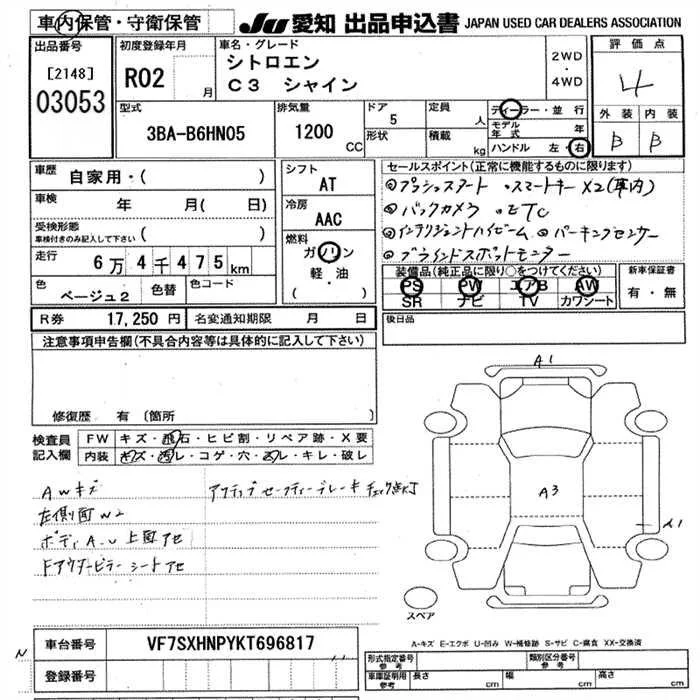 車内保管・守衛保管
JU 愛知 出品申込書 JAPAN USED CAR DEALERS ASSOCIATION
出品番号
[2148]
03053
初度登録年月
R02 月
車名・グレード
シトロエン
C3 シャイン
2WD
・
4WD
評価点
4
外装 内装
B B
型式
3BA-B6HN05
排気量
1200 CC
ドア
5
形状
定員
人
積載
kg
ディーラー・並行
モデル年式 年
ハンドル 左・右
車歴
自家用・( )
車検
年 月( 日)
受検形態
車検付きのみ記入して下さい ( )
走行
6万4千475km
色
ベージュ2
色替
色コード
シフト
AT
冷房
AAC
燃料
ガソリン
軽・油
( )
セールスポイント(正常に機能するものに限ります)
◎プッシュスタート ・スマートキーX2(車内)
◎バックカメラ ・ETC
◎インテリジェントハイビーム ◎パーキングセンサー
◎ブラインドスポットモニター
装備品(純正品に限り○をつけてください)
PS PW エアB AW
SR ナビ TV カワシート
新車保証書
有・無
R券 17,250円 名変通知期限 月 日
後日品
注意事項申告欄(不具合内容等は具体的に記入して下さい)
修復歴 有 〔箇所
検査員
記入欄
FW キズ・飛石・ヒビ割・リペア跡・X要
内装 キズ・汚レ・コゲ・穴・スレ・キレ・破レ
AWキズ
左側面W2
ボディA-U 上面アセ
Fアウターピラー シートアセ
アクティブセーフティーブレーキ チェック点灯
A1
A3
A1
スペア
A-キズ E-エクボ U-凹み W-補修跡 S-サビ C-腐食 XX-交換済
N
車台番号 VF7SXHNPYKT696817
登録番号
形式指定番号
参考
類別区分番号
参考
車庫証明用
参考
長さ cm 幅 cm 高さ cm